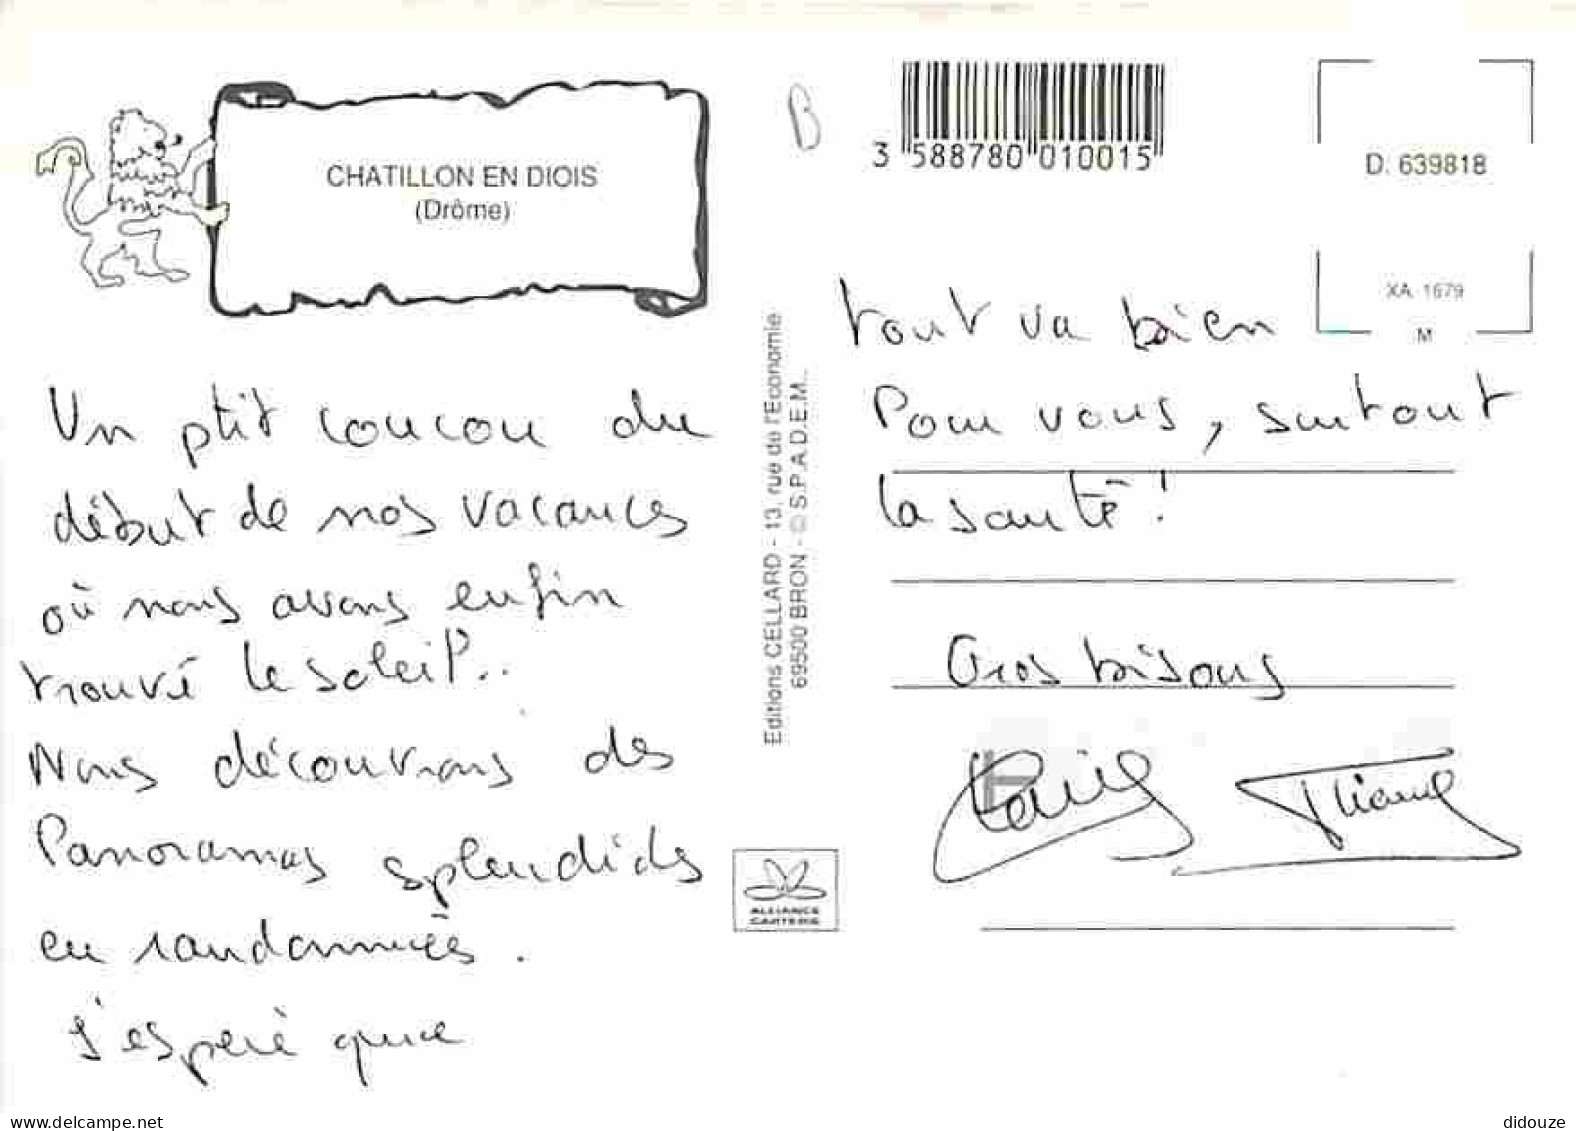 CHATILLON EN DIOIS
(Drôme)
Un ptit coucou du
début de nos vacances
où nous avons enfin
trouvé le soleil..
Nous découvrons des
Panoramas splendides
en randonnées.
J'espère que
Editions CELLARD - 13, rue de l'Economie
69500 BRON - © S.P.A.D.E.M..
ALLIANCE
CARTERIE
B
3 588780 010015
D. 639818
XA 1679
M
tout va bien
Pour vous, surtout
la santé !
Gros bisous
delcampe.net
didouze